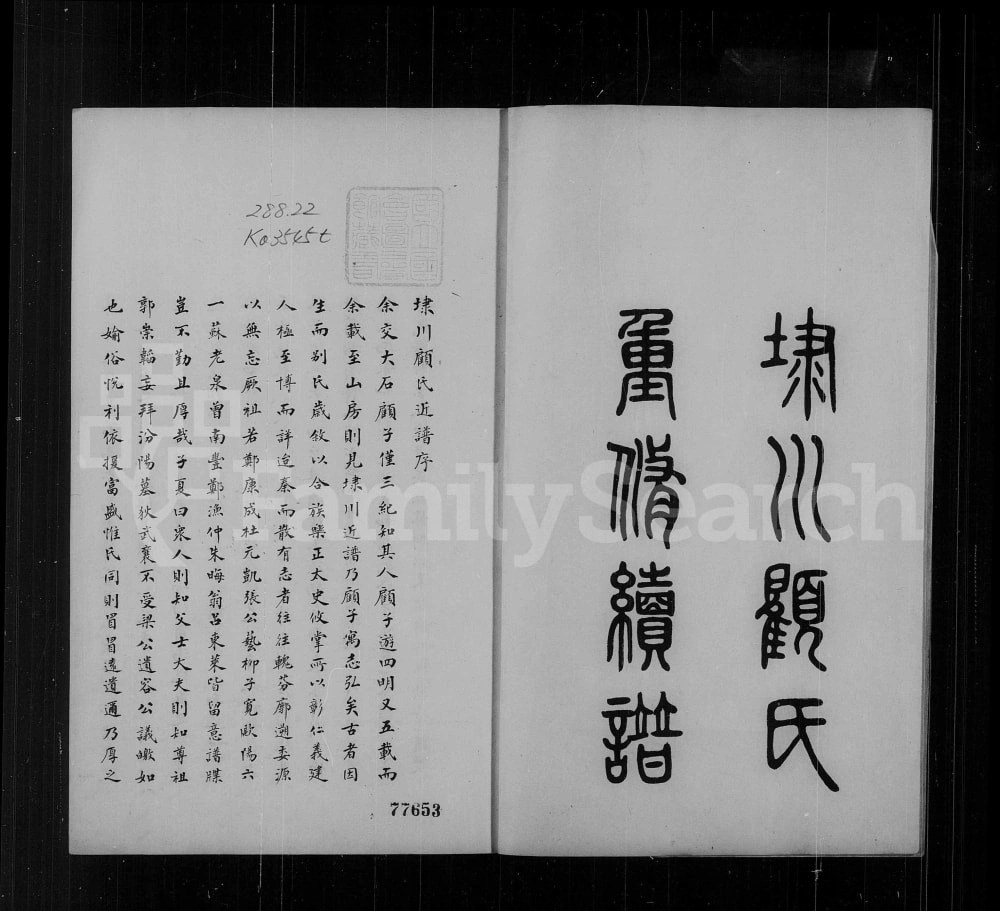 埭川顧氏
重修續譜
288.22
Ko3545t
埭川顧氏近譜序
余交大石顧子僅三紀知其人顧子遊四明又五載而
余載至山房則見埭川近譜乃顧子寓志弘矣古者因
生而别氏歲敘以合族樂正太史攸掌所以彰仁義建
人極至博而詳迨秦而散有志者往往輓芬廓遡委源
以無忘厥祖若鄭康成杜元凱張公藝柳子寬歐陽六
一蘇老泉曾南豐鄭漁仲朱晦翁呂東萊皆留意譜牒
豈不勤且厚哉子夏曰衆人則知父士大夫則知尊祖
郭崇韜妄拜汾陽墓狄武襄不受梁公遺容公議皦如
也婾俗悅利依援富盛惟氏同則冒冒遠遺邇乃厚之
77653
FamilySearch